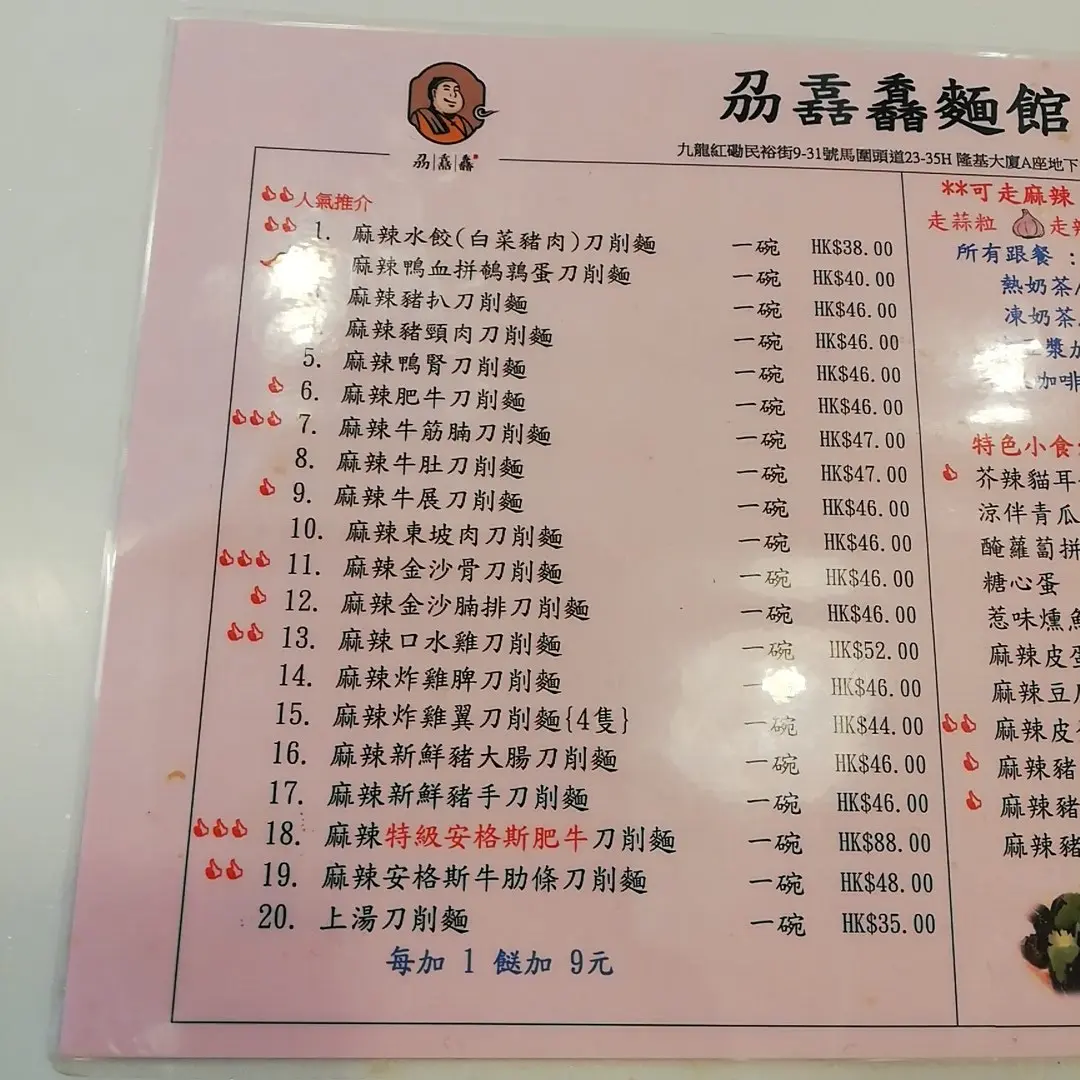 刕嚞馫麵館
九龍紅磡民裕街9-31號馬圍頭道23-35H 隆基大廈A座地下
刕|嚞|馫
人氣推介
1. 麻辣水餃(白菜豬肉)刀削麵 一碗 HK$38.00
麻辣鴨血拼鵪鶉蛋刀削麵 一碗 HK$40.00
麻辣豬扒刀削麵 一碗 HK$46.00
麻辣豬頸肉刀削麵 一碗 HK$46.00
5. 麻辣鴨腎刀削麵 一碗 HK$46.00
6. 麻辣肥牛刀削麵 一碗 HK$46.00
7. 麻辣牛筋腩刀削麵 一碗 HK$47.00
8. 麻辣牛肚刀削麵 一碗 HK$47.00
9. 麻辣牛展刀削麵 一碗 HK$46.00
10. 麻辣東坡肉刀削麵 一碗 HK$46.00
11. 麻辣金沙骨刀削麵 一碗 HK$46.00
12. 麻辣金沙腩排刀削麵 一碗 HK$46.00
13. 麻辣口水雞刀削麵 一碗 HK$52.00
14. 麻辣炸雞脾刀削麵 一碗 HK$46.00
15. 麻辣炸雞翼刀削麵{4隻} 一碗 HK$44.00
16. 麻辣新鮮豬大腸刀削麵 一碗 HK$46.00
17. 麻辣新鮮豬手刀削麵 一碗 HK$46.00
18. 麻辣特級安格斯肥牛刀削麵 一碗 HK$88.00
19. 麻辣安格斯牛肋條刀削麵 一碗 HK$48.00
20. 上湯刀削麵 一碗 HK$35.00
每加 1 餸加 9元
**可走麻辣
走蒜粒 走辣
所有跟餐：
熱奶茶/
凍奶茶
漿加
咖啡
特色小食
芥辣貓耳
涼伴青瓜
醃蘿蔔拼
糖心蛋
惹味燻魚
麻辣皮蛋
麻辣豆
麻辣皮
麻辣豬
麻辣豬
麻辣豬